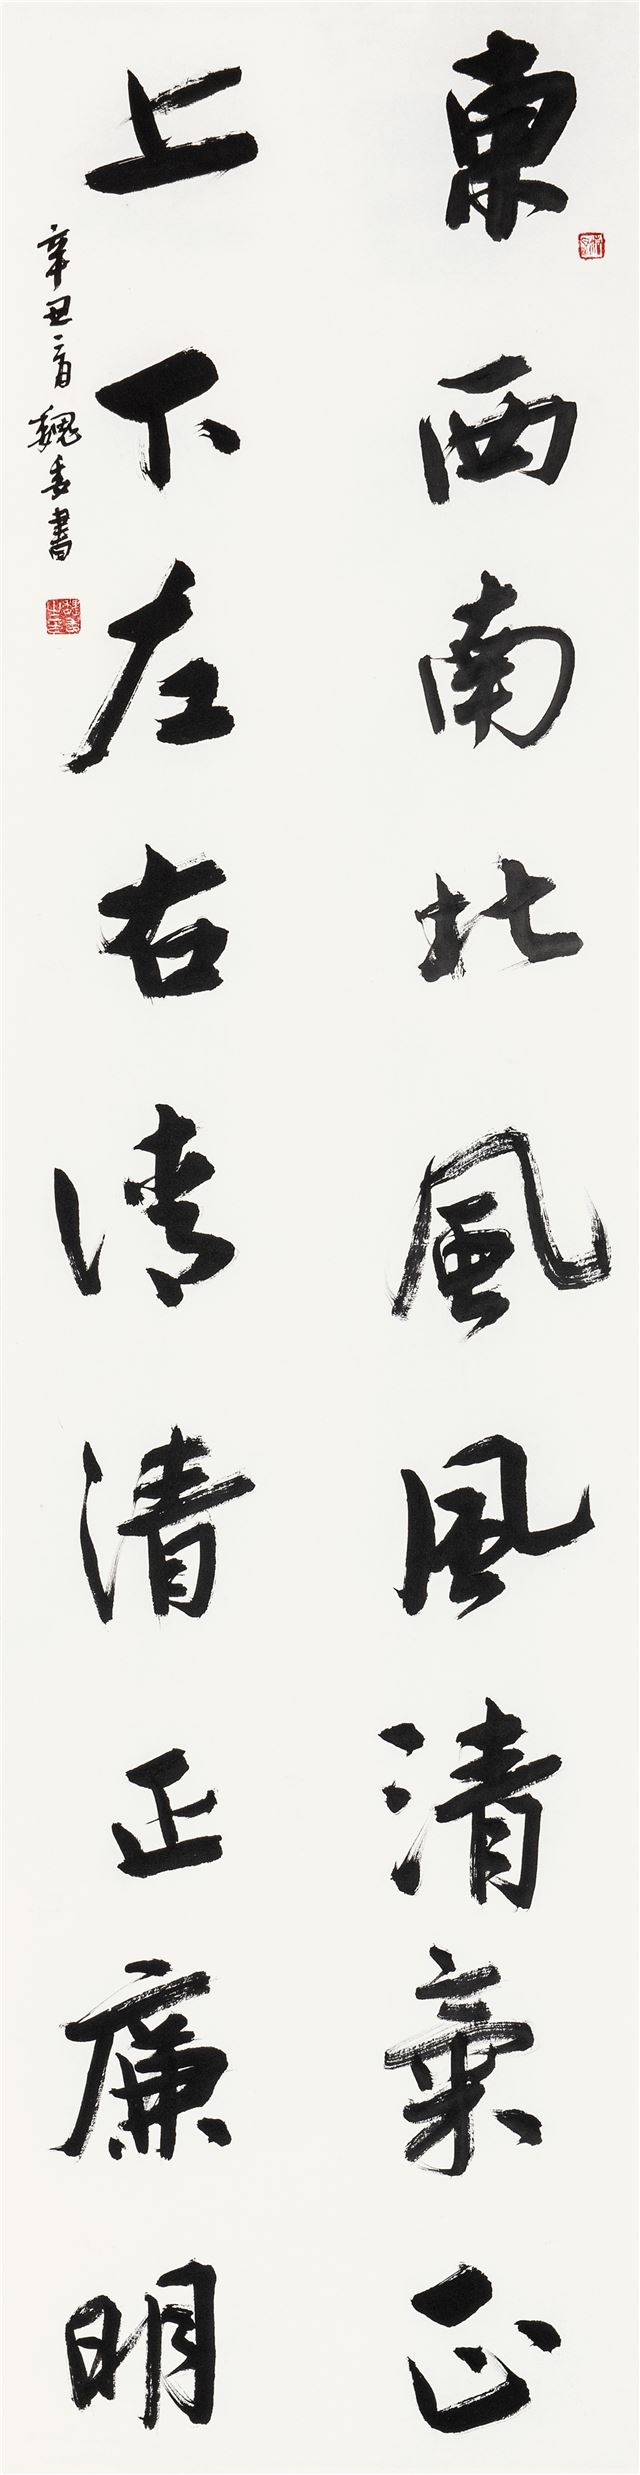 東西南北風風清氣正
上下左右清清正廉明
辛丑二月魏書